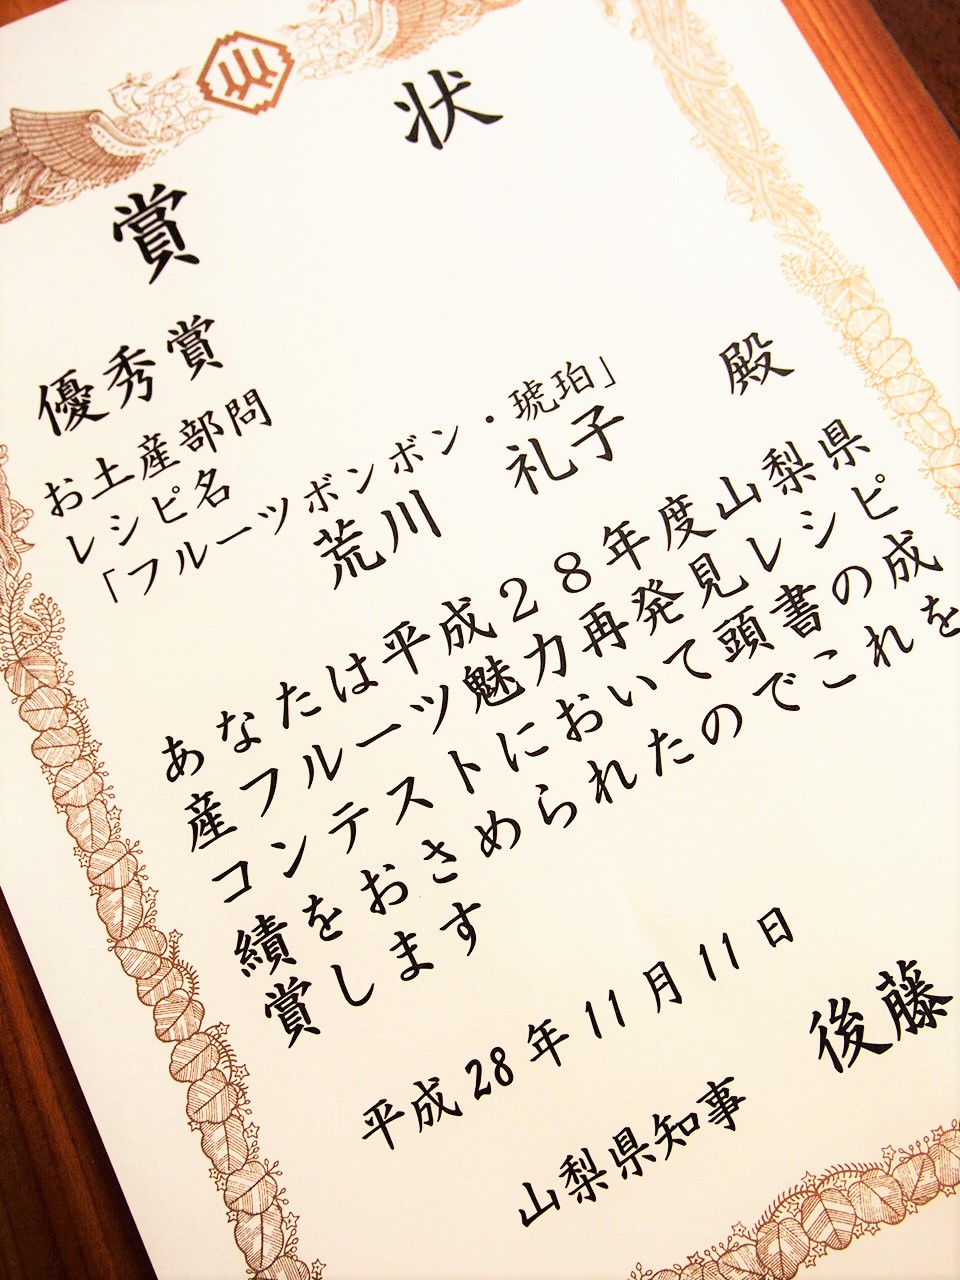 賞状
優秀賞
お土産部問
レシピ名
「フルーツボンボン・琥珀」
荒川 礼子 殿
あなたは平成28年度山梨県
産フルーツ魅力再発見レシピ
コンテストにおいて頭書の成
績をおさめられたのでこれを
賞します
平成28年11月11日
山梨県知事 後藤